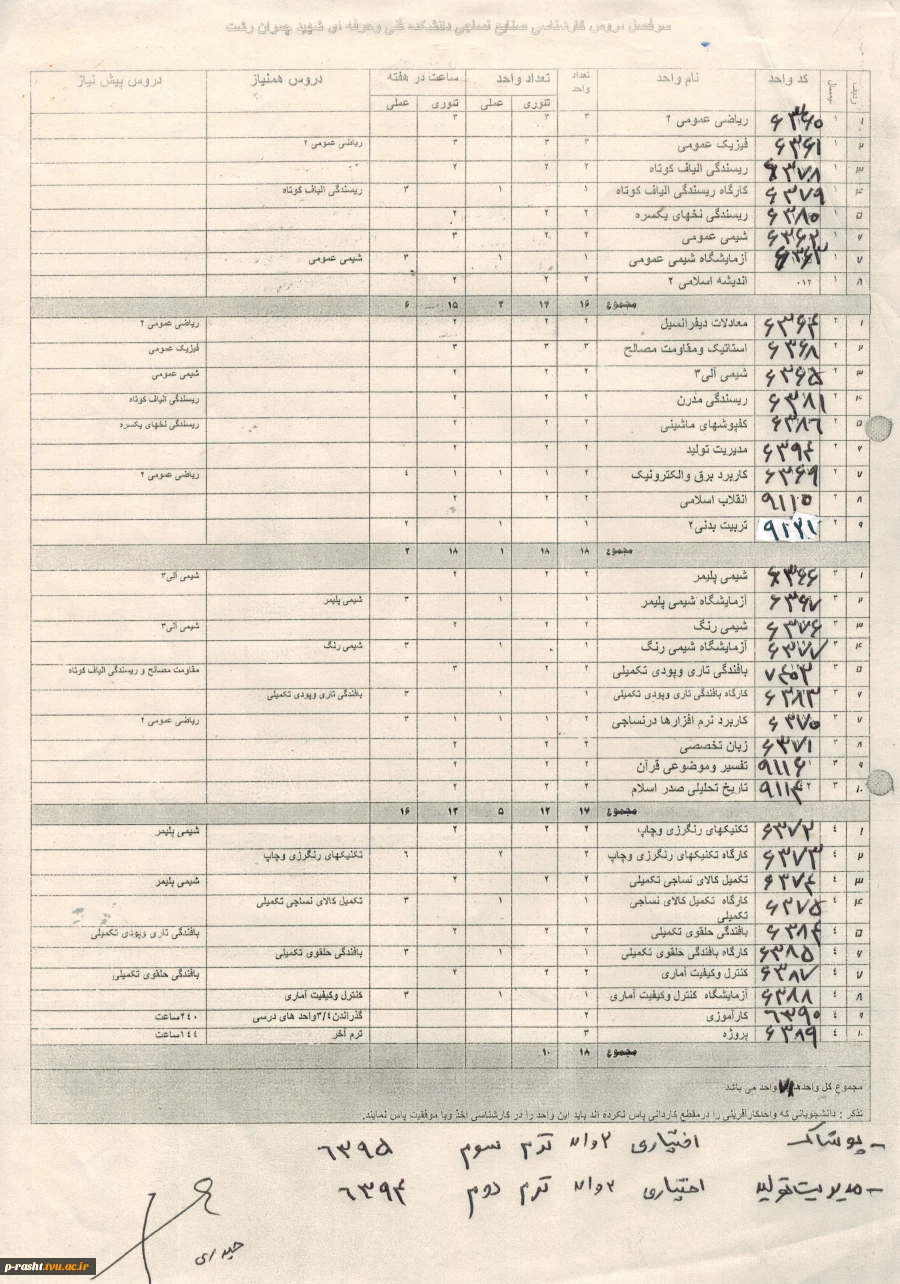 سرفصل دروس کارشناسی صنایع نساجی دانشکده فنی وحرفه ای شهید چمران رشت
ردیف نیمسال کد واحد نام واحد تعداد واحد تعداد واحد ساعت در هفته دروس همنیاز دروس پیش نیاز
تئوری عملی تئوری عملی
۱ ۱ ۶۳۶۰ ریاضی عمومی ۲ ۳ ۳ ۳
۲ ۱ ۶۳۶۱ فیزیک عمومی ۳ ۳ ۳ ریاضی عمومی ۲
۳ ۱ ۶۳۷۸ ریسندگی الیاف کوتاه ۲ ۲ ۲
۴ ۱ ۶۳۷۹ کارگاه ریسندگی الیاف کوتاه ۱ ۱ ۳ ریسندگی الیاف کوتاه
۵ ۱ ۶۳۸۰ ریسندگی نخهای یکسره ۲ ۲ ۲
۶ ۱ ۶۳۶۲ شیمی عمومی ۲ ۲ ۳
۷ ۱ ۶۳۶۳ آزمایشگاه شیمی عمومی ۱ ۱ ۳ شیمی عمومی
۸ ۱ ۰۱۲ اندیشه اسلامی ۲ ۲ ۲ ۲
مجموع ۱۶ ۱۴ ۲ ۱۵ ۶
۱ ۲ ۶۳۶۴ معادلات دیفرانسیل ۲ ۲ ۲ ریاضی عمومی ۲
۲ ۲ ۶۳۶۸ استاتیک ومقاومت مصالح ۳ ۳ ۳ فیزیک عمومی
۳ ۲ ۶۳۶۵ شیمی آلی۳ ۲ ۲ ۲ شیمی عمومی
۴ ۲ ۶۳۸۱ ریسندگی مدرن ۲ ۲ ۲ ریسندگی الیاف کوتاه
۵ ۲ ۶۳۸۶ کفپوشهای ماشینی ۲ ۲ ۲ ریسندگی نخهای یکسره
۶ ۲ ۶۳۹۴ مدیریت تولید ۲ ۲ ۲
۷ ۲ ۶۳۶۹ کاربرد برق والکترونیک ۲ ۱ ۱ ۱ ۴ ریاضی عمومی ۲
۸ ۲ ۹۱۱۵ انقلاب اسلامی ۲ ۲ ۲
۹ ۲ ۹۱۲۱ تربیت بدنی۲ ۱ ۱ ۲
مجموع ۱۸ ۱۸ ۱ ۱۸ ۲
۱ ۳ ۶۳۶۶ شیمی پلیمر ۲ ۲ ۲ شیمی آلی۳
۲ ۳ ۶۳۶۷ آزمایشگاه شیمی پلیمر ۱ ۱ ۳ شیمی پلیمر
۳ ۳ ۶۳۷۶ شیمی رنگ ۲ ۲ ۲ شیمی آلی۳
۴ ۳ ۶۳۷۷ آزمایشگاه شیمی رنگ ۱ ۱ ۳ شیمی رنگ
۵ ۳ بافندگی تاری وپودی تکمیلی ۲ ۲ ۳ مقاومت مصالح و ریسندگی الیاف کوتاه
۶ ۳ ۶۳۸۳ کارگاه بافندگی تاری وپودی تکمیلی ۱ ۱ ۳ بافندگی تاری وپودی تکمیلی
۷ ۳ ۶۳۷۰ کاربرد نرم افزارها درنساجی ۲ ۱ ۱ ۱ ۳ ریاضی عمومی ۲
۸ ۳ ۶۳۷۱ زبان تخصصی ۲ ۲ ۲
۹ ۳ ۹۱۱۶ تفسیر وموضوعی قرآن ۲ ۲ ۲
۱۰ ۳ ۹۱۱۴ تاریخ تحلیلی صدر اسلام ۲ ۲ ۲
مجموع ۱۷ ۱۲ ۵ ۱۳ ۱۶
۱ ۴ ۶۳۷۲ تکنیکهای رنگرزی وچاپ ۲ ۲ ۲ شیمی پلیمر
۲ ۴ ۶۳۷۳ کارگاه تکنیکهای رنگرزی وچاپ ۲ ۲ ۶ تکنیکهای رنگرزی وچاپ
۳ ۴ ۶۳۷۴ تکمیل کالای نساجی تکمیلی ۲ ۲ ۲ شیمی پلیمر
۴ ۴ ۶۳۷۵ کارگاه تکمیل کالای نساجی تکمیلی ۱ ۱ ۳ تکمیل کالای نساجی تکمیلی
۵ ۴ ۶۳۸۴ بافندگی حلقوی تکمیلی ۲ ۲ ۲ بافندگی تاری وپودی تکمیلی
۶ ۴ ۶۳۸۵ کارگاه بافندگی حلقوی تکمیلی ۱ ۱ ۳ بافندگی حلقوی تکمیلی
۷ ۴ ۶۳۸۷ کنترل وکیفیت آماری ۲ ۲ ۲ بافندگی حلقوی تکمیلی
۸ ۴ ۶۳۸۸ آزمایشگاه کنترل وکیفیت آماری ۱ ۱ ۳ کنترل وکیفیت آماری
۹ ۴ ۶۳۹۰ کارآموزی ۲ گذراندن۳/۴واحد های درسی ۲۴۰ساعت
۱۰ ۴ ۶۳۸۹ پروژه ۳ ترم آخر ۱۴۴ساعت
مجموع ۱۸ ۱۰
مجموع کل واحدها ۷۱ واحد می باشد
تذکر : دانشجویانی که واحدکارآفرینی را درمقطع کاردانی پاس نکرده اند باید این واحد را در کارشناسی اخذ وبا موفقیت پاس نمایند.
- پوشاک اختیاری ۲واحد ترم سوم ۶۳۹۵
- مدیریت تولید اختیاری ۲واحد ترم دوم ۶۳۹۴
حیدری
p-rasht.tvu.ac.ir